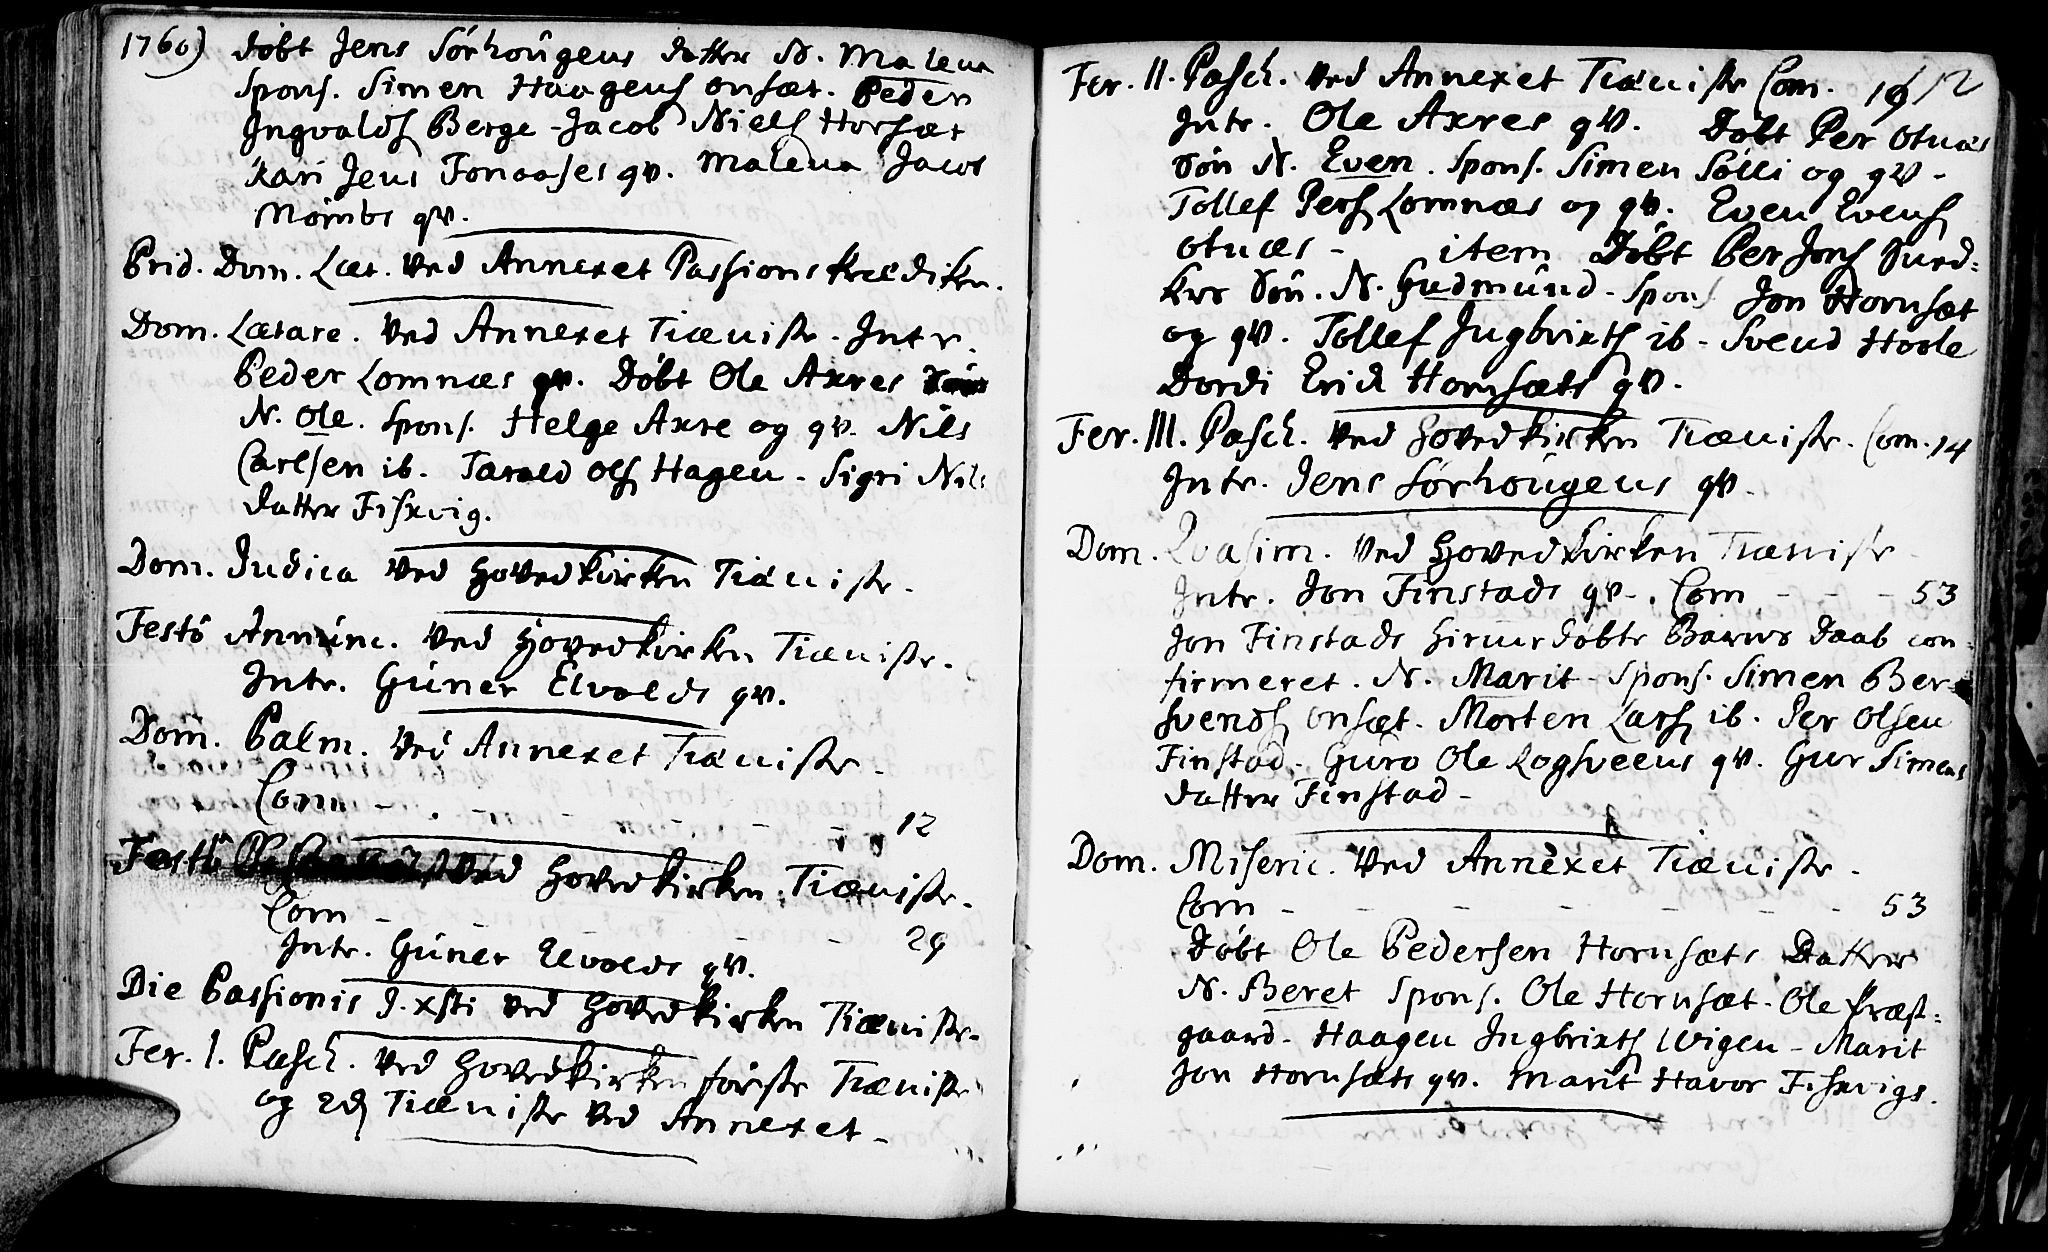 1760) døbt Jens Sørhougens datter N. Malena
Spons. Simen Haagens onsæt. Peder
Ingvalds Berge - Jacob Niels Horsæt
Kari Jens Fonaases qv. Malena Jacob
Mømbs qv.
Prid. Dom. Læt. ved Annexet Passions Prædiken.
Dom. Lætare. ved Annexet Tiæniste. Intr.
Peder Lomnæs qv. Døbt Ole Axres Søn
N. Ole. Spons. Helge Axre og qv. Nils
Carlsen ib. Tarald Ols Hagen - Sigri Nils
datter Fiskvig.
Dom. Judica ved Hovedkirken Tiæniste.
Festo Annunc. ved Hovedkirken Tiæniste.
Intr. Guner Elvolds qv.
Dom. Palm. ved Annexet Tiæniste.
Com - - - - - 12
Festo ved Hovedkirken Tiæniste.
Com - - - - 29
Intr. Guner Elvolds qv.
Die Passionis J. xsti ved Hovedkirken Tiæniste.
Fer. I. Pasch. ved Hovedkirken første Tiæniste
og 2den Tiæniste ved Annexet -
Fer. II. Pasch. ved Annexet Tiæniste Com. 12
Intr. Ole Axres qv. Døbt Per Otnæs
Søn N. Even. Spons. Simen Sølli og qv -
Tollef Pers Lomnæs og qv. Even Evens
Otnæs - item Døbt Per Jons Sund=
Søn. N. Gudmund - Spons Jon Hornsæt
og qv. Tollef Ingbrixts ib - Svend Hoole
Dordi Erick Hornsæts qv.
Fer. III. Pasch. ved Hovedkirken Tiæniste. Com. 14
Intr. Jens Sørhougens qv -
Dom. Qvasim. ved Hovedkirken Tiæniste -
Intr. Jon Finstads qv -. Com - - - 53
Jon Finstads hiemedøbte Barns Daab con=
firmeret. N. Marit - Spons. Simen Ber-
svends onsæt - Morten Lars ib. Per Olsen
Finstad. Guro Ole Logsveens qv. Gur Simens
datter Finstad -
Dom. Miseric. ved Annexet Tiæniste -
Com - - - - - - 53
Døbt Ole Pedersen Hornsæts Datter
N. Beret Spons. Ole Hornsæt - Ole Præst=
gaard - Haagen Ingbrixts Wigen - Marit
Jon Hornsæts qv. Marit Havor Fiskvigs.